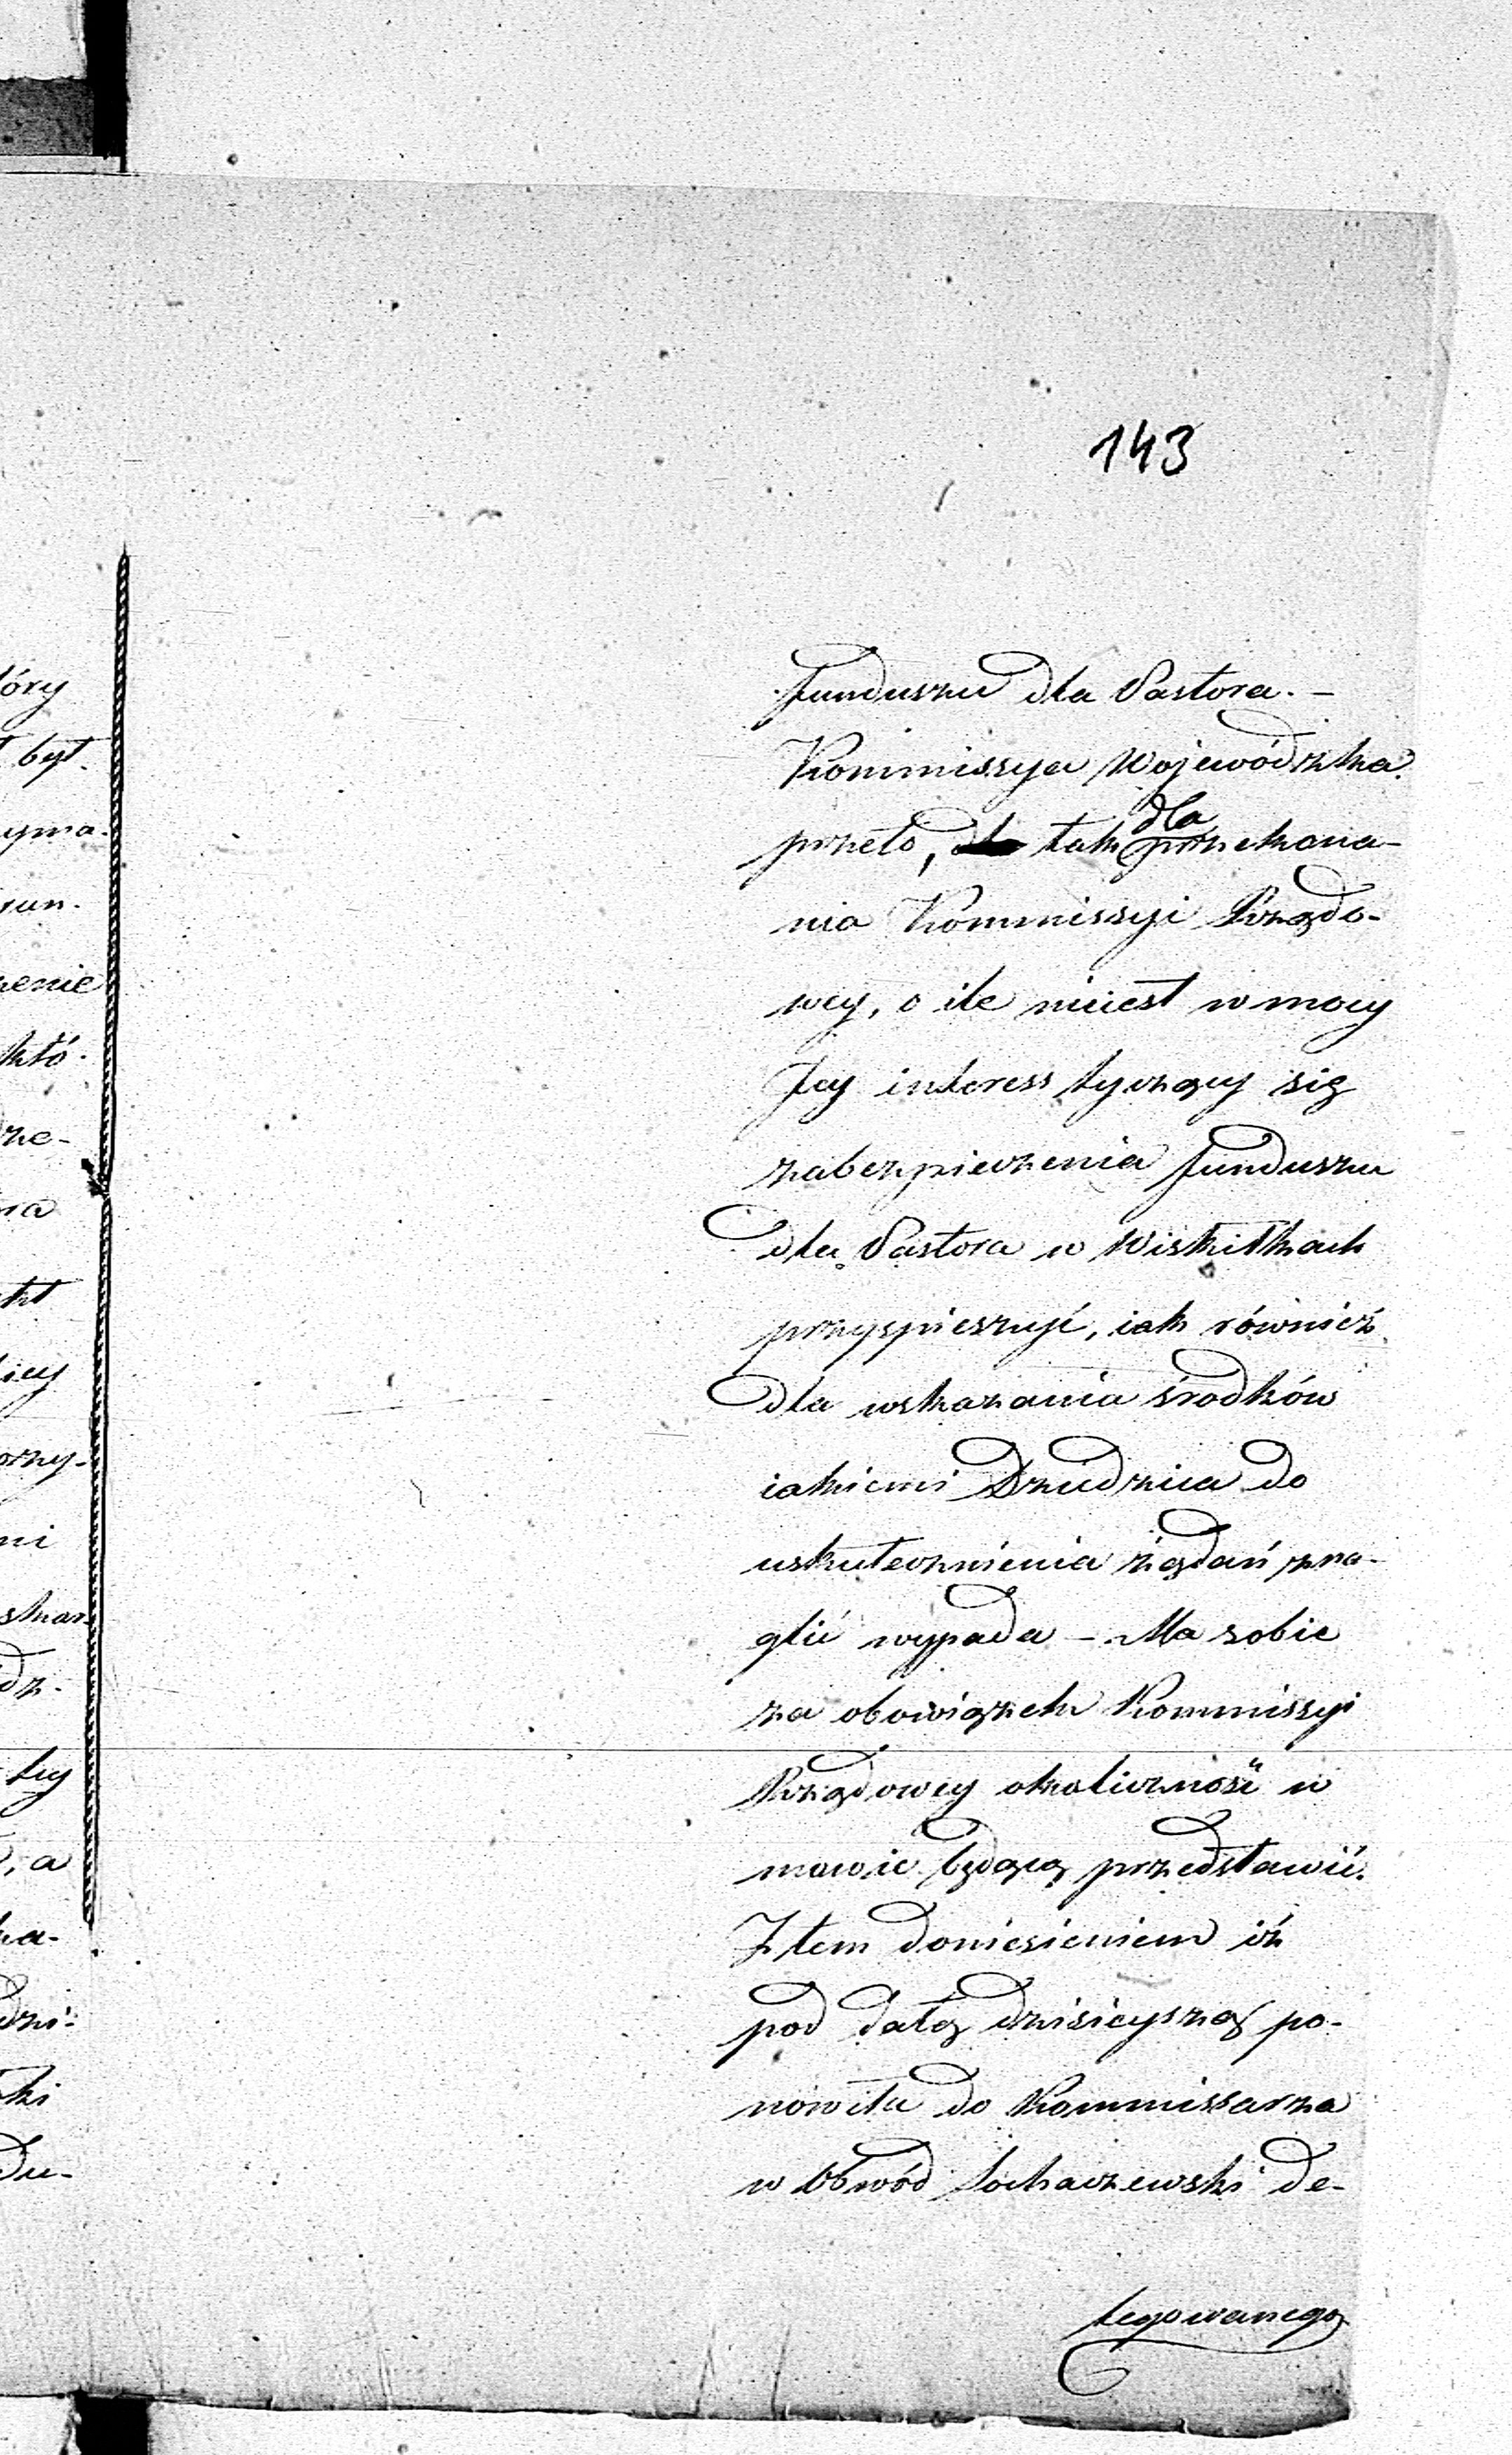 143
funduszu dla Pastora. –
Kommissya Wojewódzka
przeto, tak dla przekona-
nia Kommissyi Rządo-
wey, o ile nieiest w mocy
Jey interess tyczący się
zabezpieczenia funduszu
dla Pastora w Wiskitkach
przyspieszyć, iak również
dla wskazania środków
iakiemi Dziedzica do
uskutecznienia żądań zna-
glić wypada – Ma sobie
za obowiązek Kommissyi
Rządowey okoliczność w
mowie będącą przedstawić.
Z tem doniesieniem iż
pod datą dzisieyszą po-
nowiła do Kommissarza
w Obwód Sochaczewski de-
legowanego
óry
był.
yma-
run-
enie
któ-
rze-
na
kt
icy
orzy-
ni
skar-
dz-
tey
, a
ka-
dzi-
ki
du-